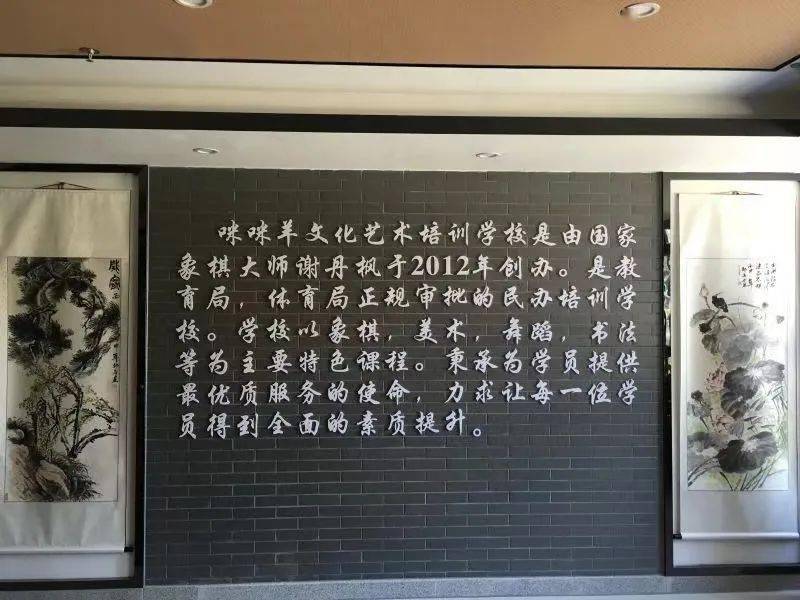 咪咪羊文化艺术培训学校是由国家
象棋大师谢丹枫于2012年创办。是教
育局，体育局正规审批的民办培训学
校。学校以象棋，美术，舞蹈，书法
等为主要特色课程。秉承为学员提供
最优质服务的使命，力求让每一位学
员得到全面的素质提升。